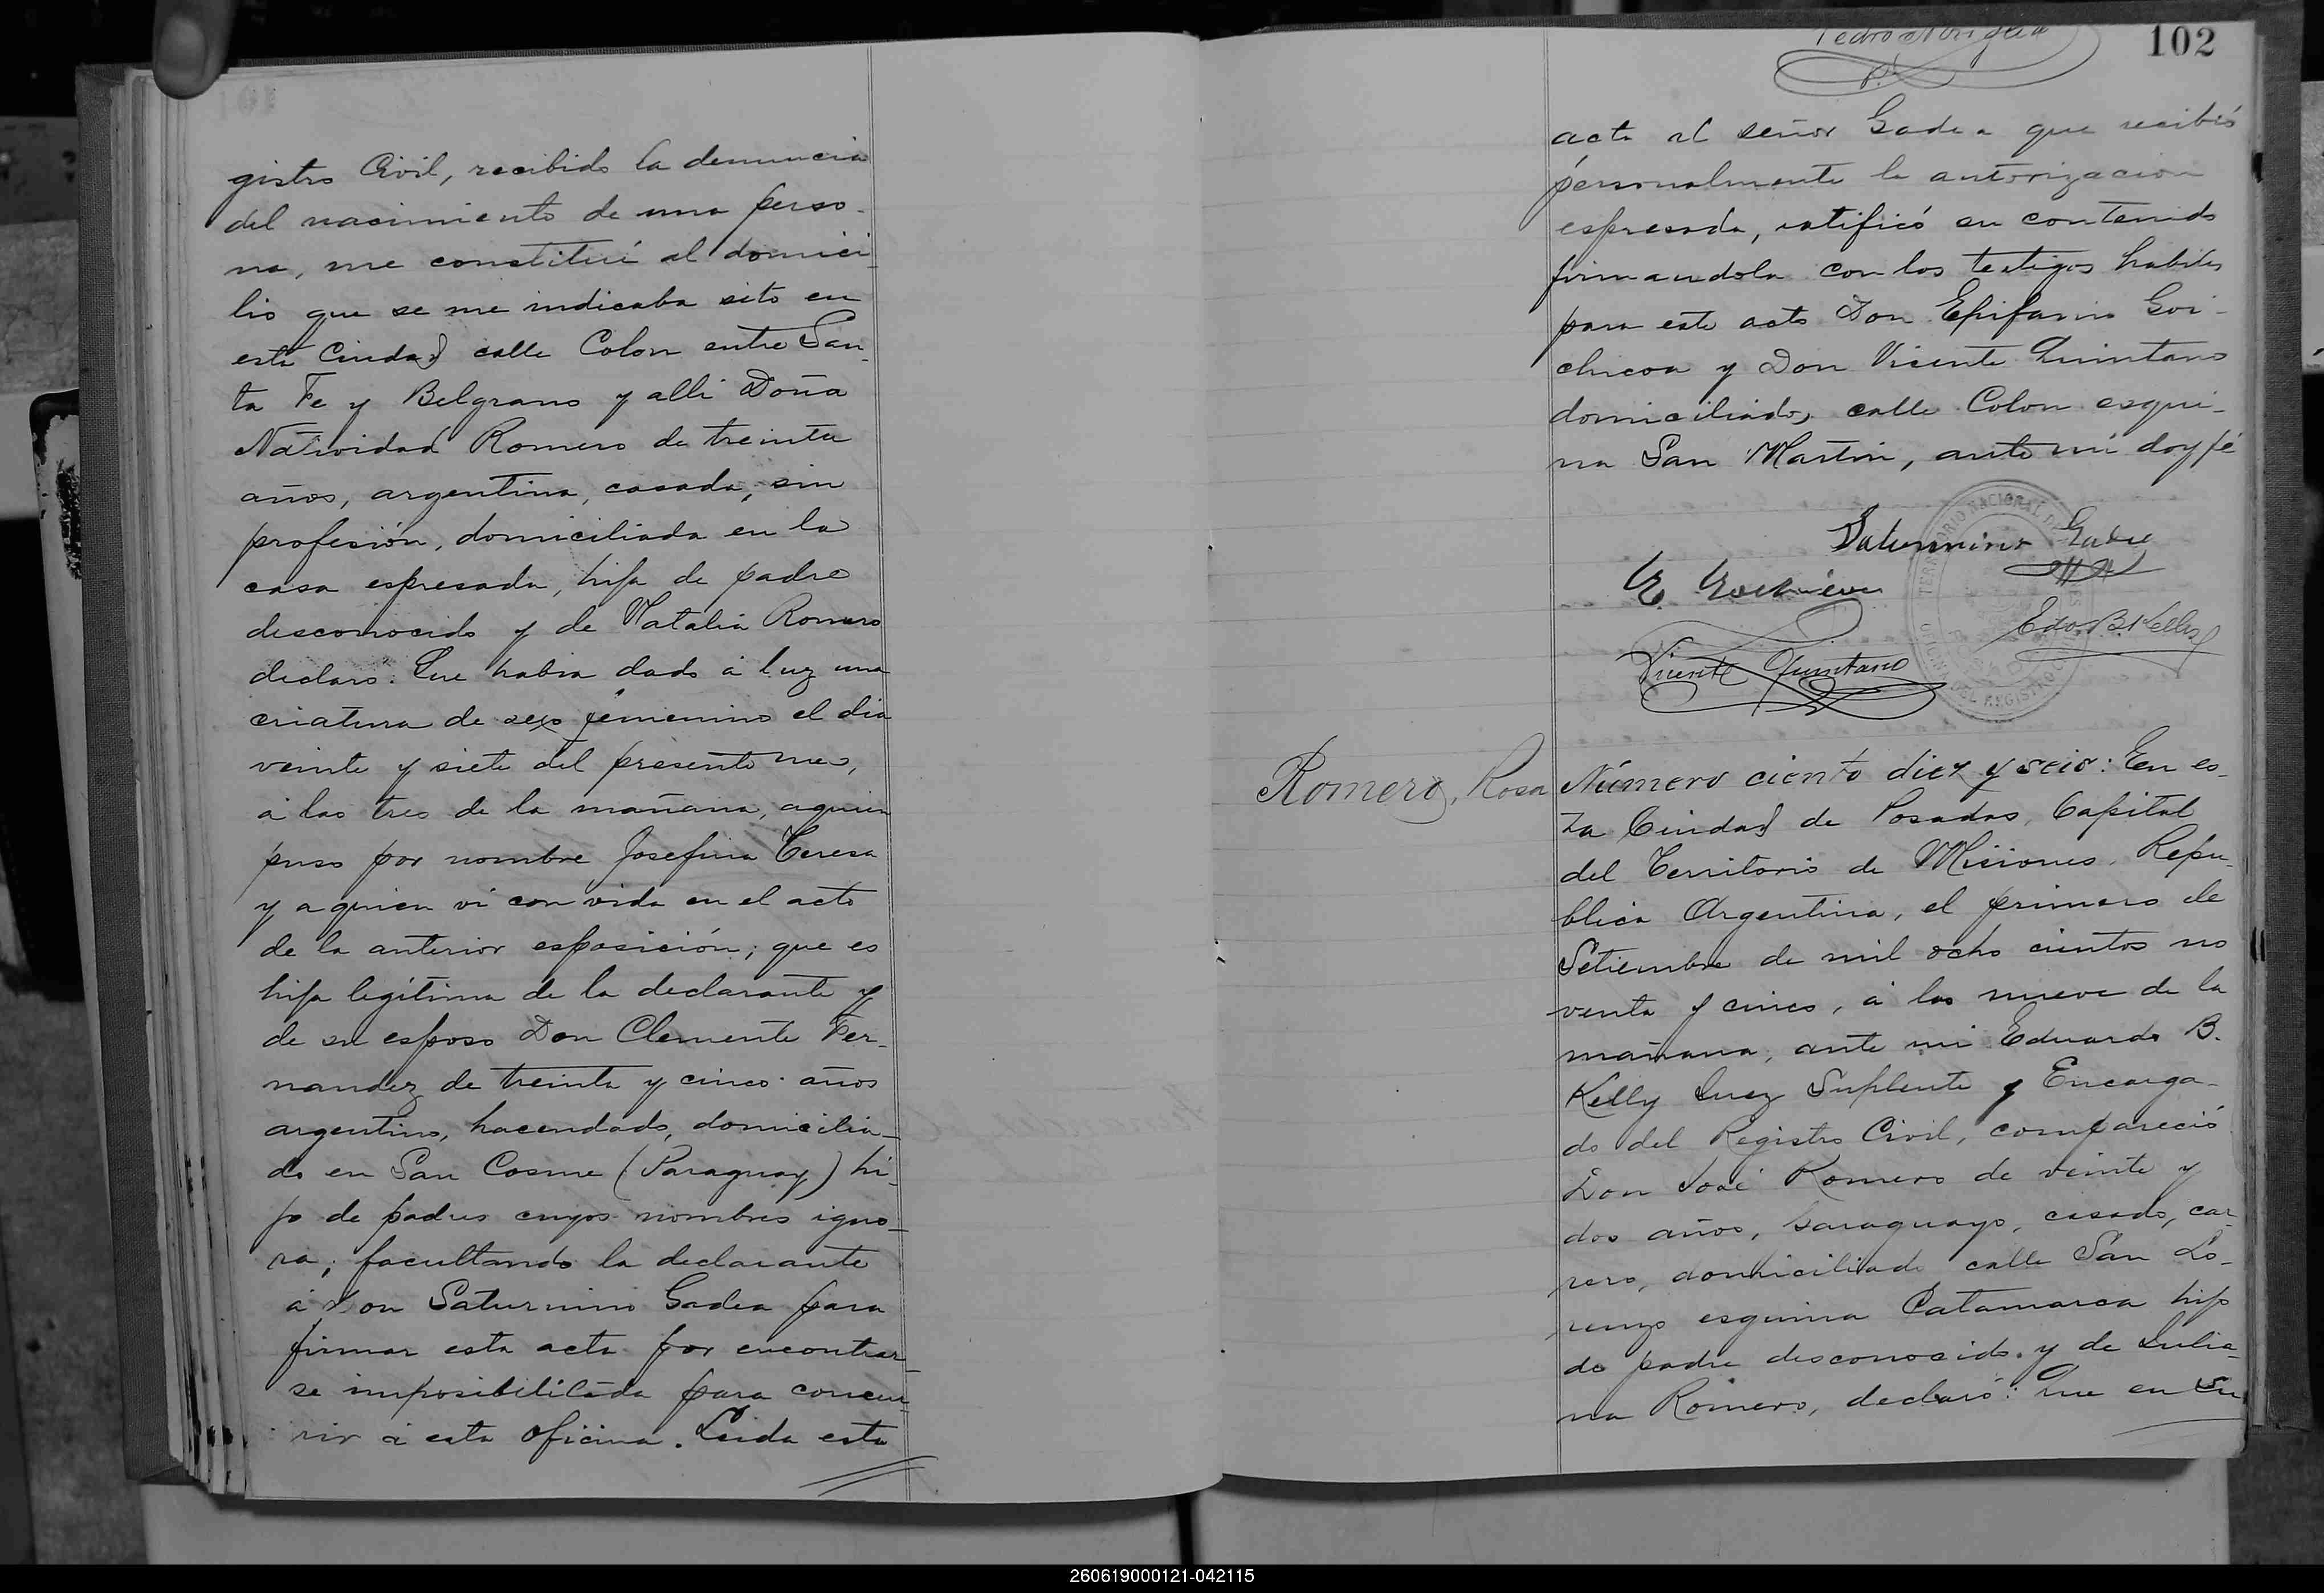 gistro Civil, recibido la denuncia
del nacimiento de una perso-
na, me constituí al domici-
lio que se me indicaba sito en
esta Ciudad calle Colon entre San-
ta Fe y Belgrano y alli Doña
Natividad Romero de treinta
años, argentina, casada, sin
profesión, domiciliada en la
casa espresada, hija de padre
desconocido y de Natalia Romero
declaro: Que habia dado á luz una
criatura de sexo femenino el dia
veinte y siete del presente mes,
á las tres de la mañana, aquien
puso por nombre Josefina Teresa
y aquien vi con vida en el acto
de la anterior esposición; que es
hija legítima de la declarante y
de su esposo Don Clemente Fer-
nandez de treinta y cinco años
argentino, hacendado, domicilia-
do en San Cosme (Paraguay) hi-
jo de padres cuyos nombres igno-
ra; facultando la declarante
á Don Saturnino Gadea para
firmar esta acta por encontrar-
se imposibilitada para concu-
rir á esta Oficina. Leida esta
102
acta al señor Gadea que recibió
personalmente la autorizacion
espresada, ratificó su contenido
firmandola con los testigos habiles
para este acto Don Epifanio Goi-
chicoa y Don Vicente Quintano
domiciliados calle Colon esqui-
na San Martin, ante mi doy fé
Saturnino Gadea
E. Goichicoa
Edo. B. Kelly
Vicente Quintano
TERRITORIO NACIONAL DE MISIONES
OFICINA DEL REGISTRO
Romero, Rosa
Número ciento diez y seis: En es-
ta Ciudad de Posadas, Capital
del Territorio de Misiones, Repu-
blica Argentina, el primero de
Setiembre de mil ocho cientos no
venta y cinco, á las nueve de la
mañana, ante mi Eduardo B.
Kelly Juez Suplente y Encarga-
do del Registro Civil, compareció
Don José Romero de veinte y
dos años, paraguayo, casado, car-
rero, domiciliado calle San Lo-
renzo esquina Catamarca hijo
de padre desconocido y de Julia-
na Romero, declaró: Que en su